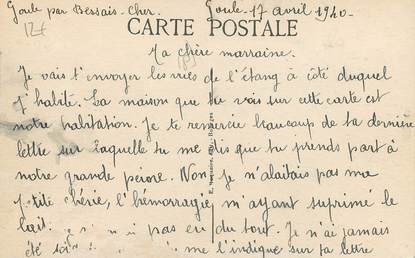 Goule par Bessais-Cher
Goule. 17 avril 1940.
12f
CARTE POSTALE
Ma chère marraine.
Je vais t'envoyer les vues de l'étang à côté duquel
j'habite. La maison que tu vois sur cette carte est
notre habitation. Je te remercie beaucoup de ta dernière
lettre sur laquelle tu me dis que tu prends part à
notre grande peine. Non je n'alaitais pas ma
p'tite chérie, l'hémorragie m'ayant suprimé le
lait. pas eu du tout. Je n'ai jamais
été me l'indique sur ta lettre
Bourges